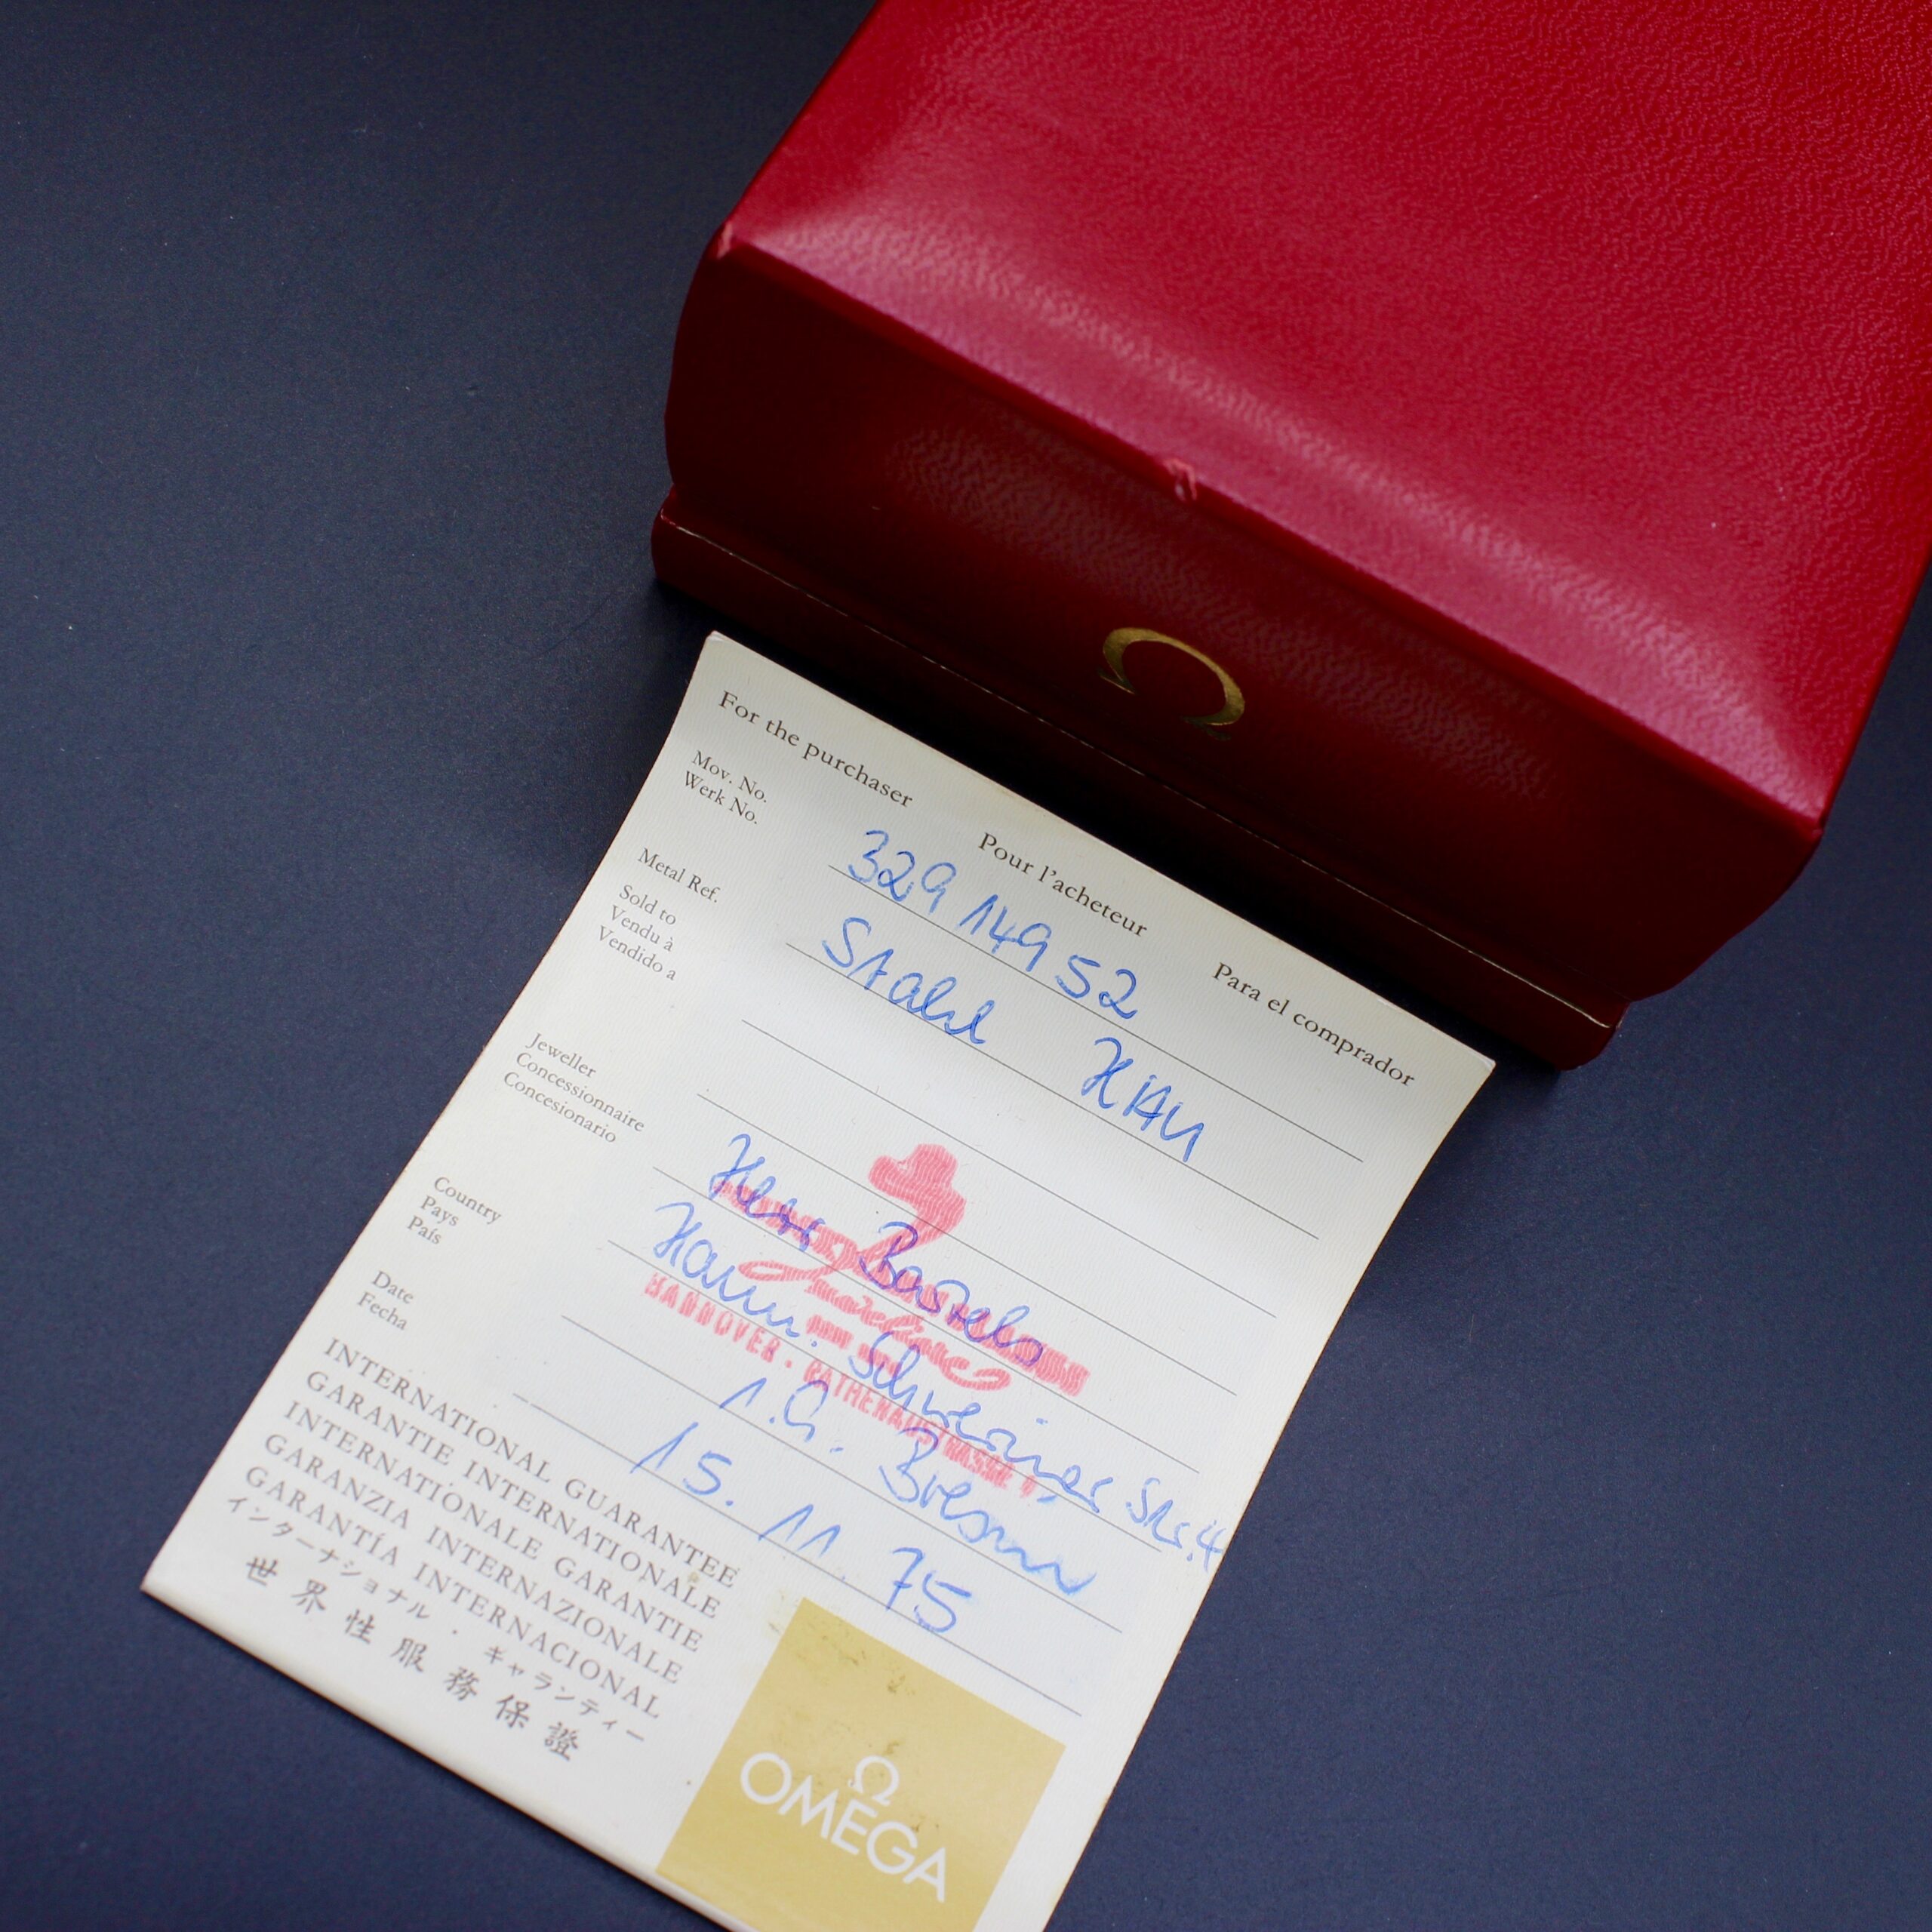 Ω
For the purchaser Pour l'acheteur Para el comprador
Mov. No.
Werk No.
329 149 52
Metal Ref.
Stahl
Sold to
Vendu à
Vendido a
Jeweller
Concessionnaire
Concesionario
Herr Bartels
Hann. Schweriner Str. 4
HANNOVER · RATHENAUSTRASSE
Country
Pays
País
Date
Fecha
15. 11. 75
INTERNATIONAL GUARANTEE
GARANTIE INTERNATIONALE
INTERNATIONALE GARANTIE
GARANZIA INTERNAZIONALE
GARANTÍA INTERNACIONAL
インターナショナル・ギャランティー
世界性服務保證
Ω
OMEGA